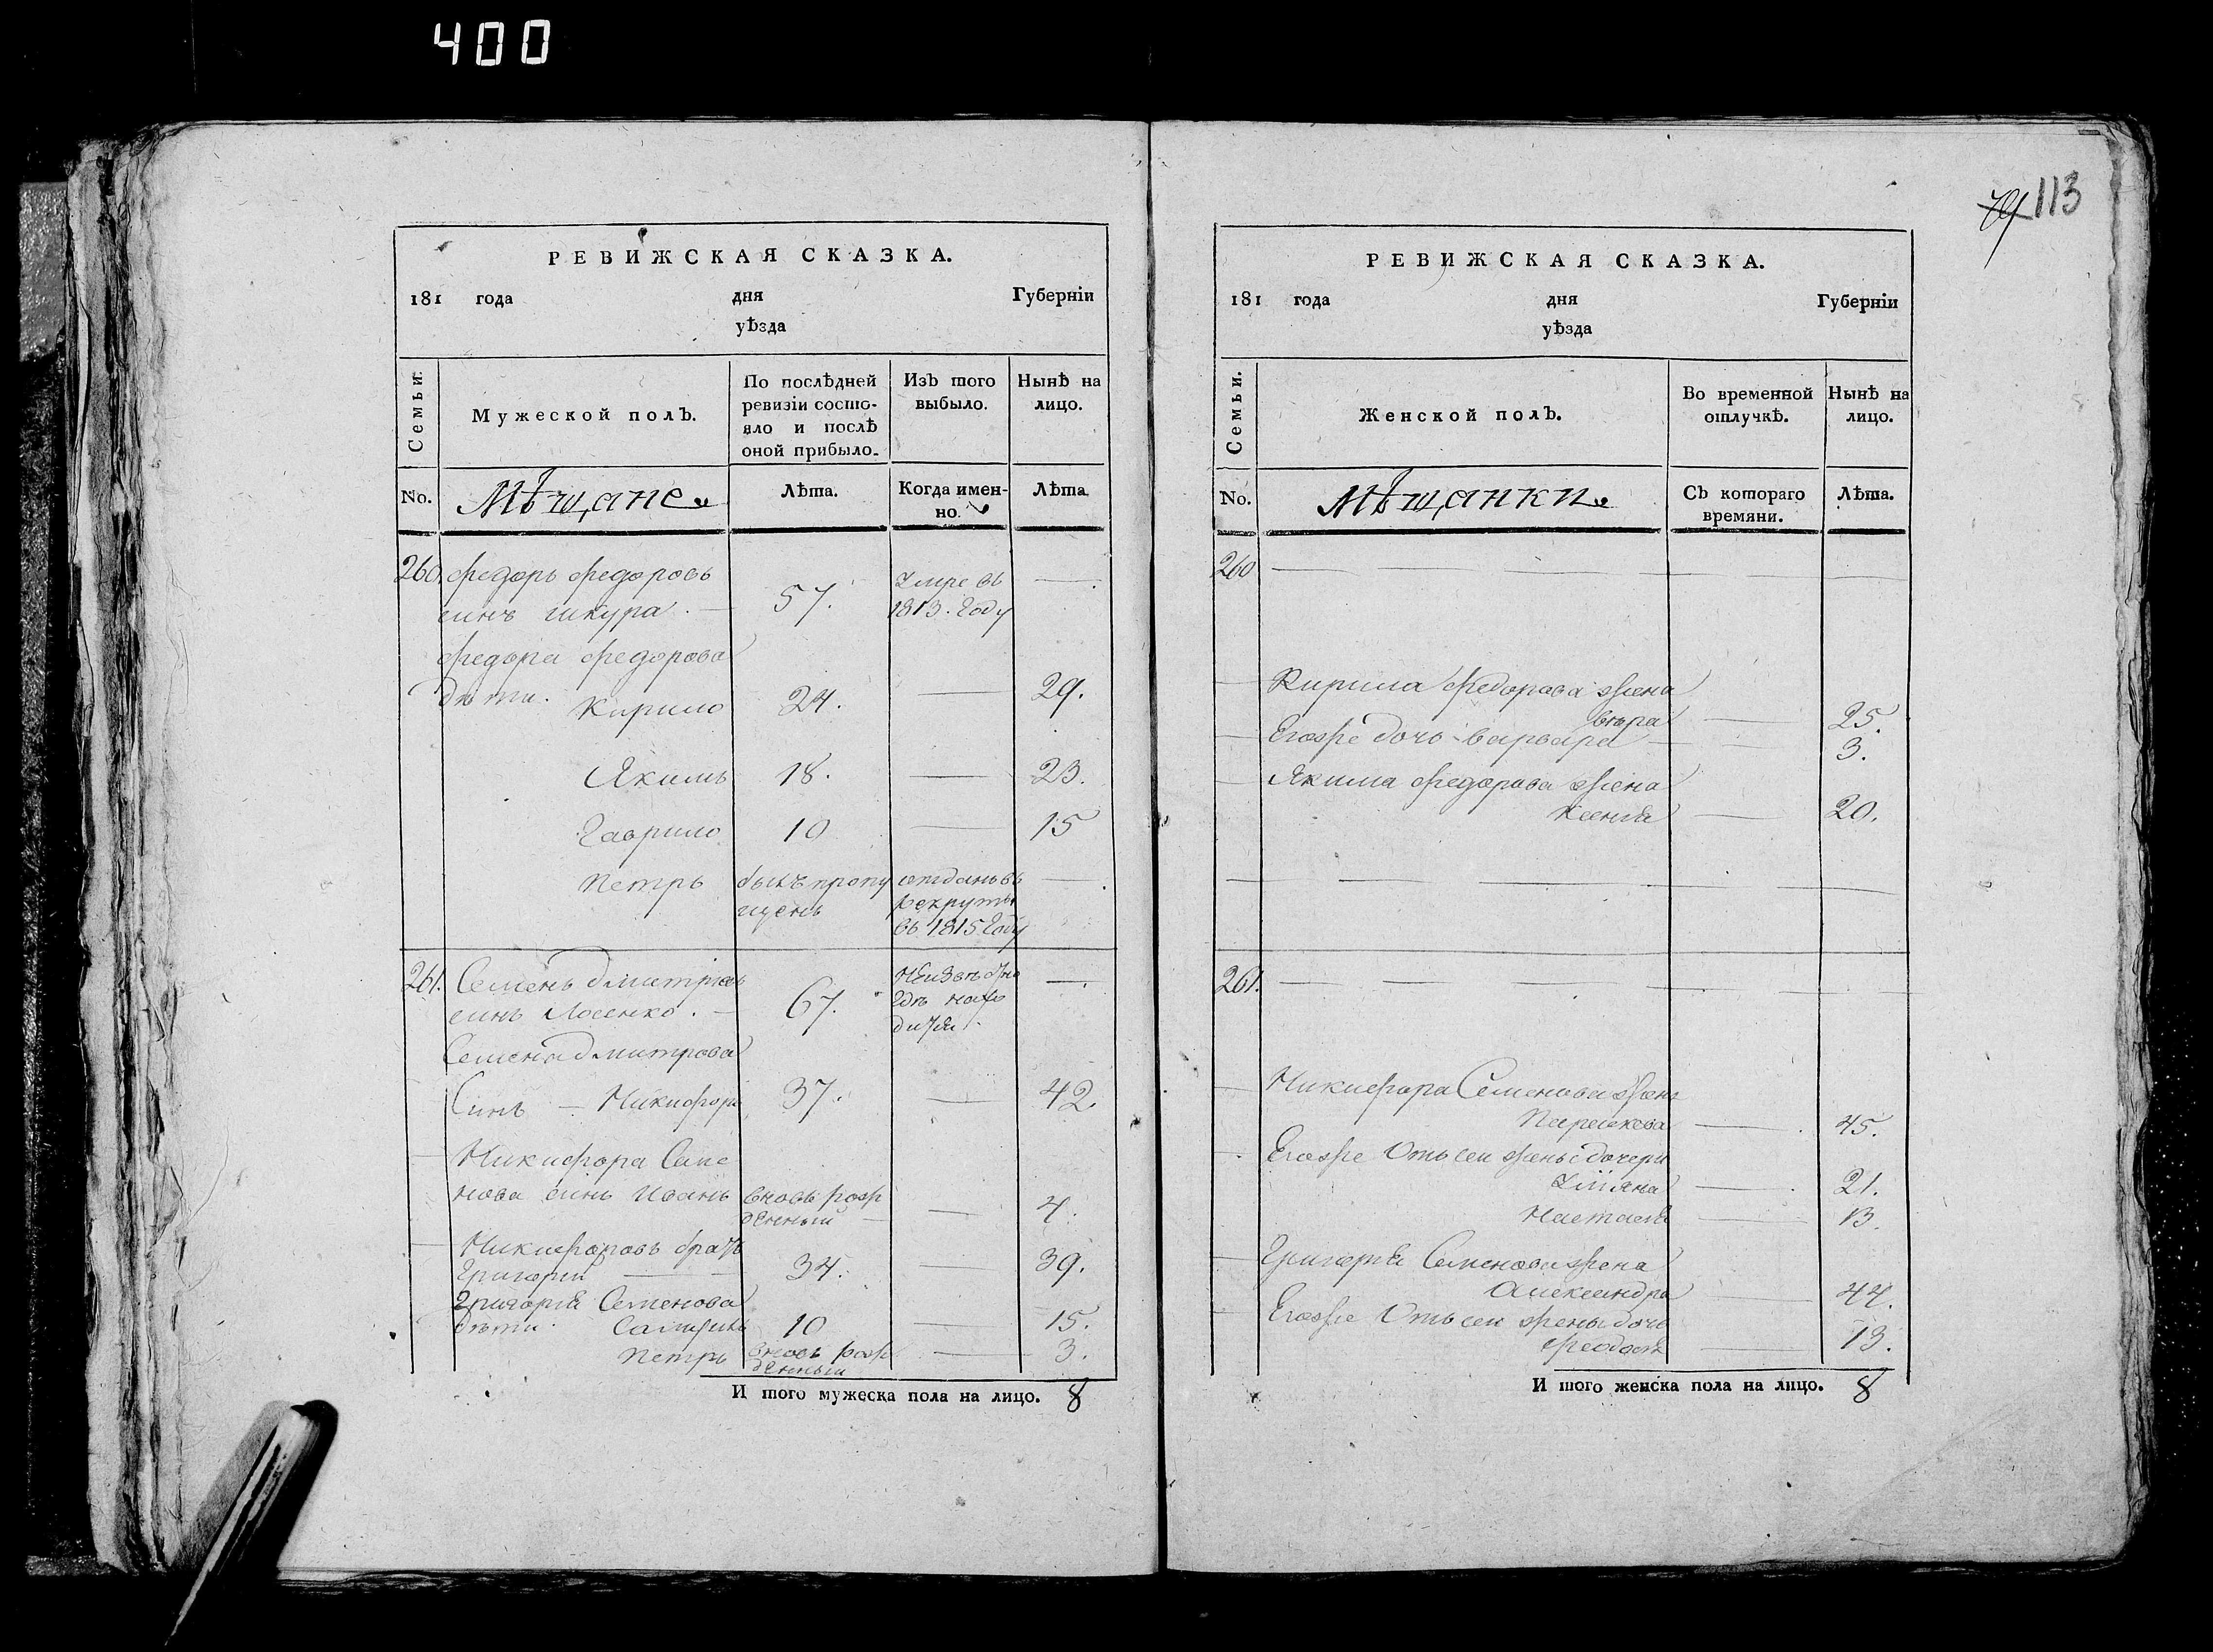 400
РЕВИЖСКАЯ СКАЗКА.
181 года дня Губерніи
уѣзда
Семьи.
Мужеской полъ.
По послѣдней
ревизіи состо-
яло и послѣ
оной прибыло.
Изъ того
выбыло.
Нынѣ на
лицо.
No.
Мѣщане
Лѣта.
Когда имен-
но.
Лѣта
260 Федоръ Федоровъ
синъ шкура. 57. Умре въ
1813. Году
Федора Федорова
дѣти.
Кирило 24. 29.
Якимъ 18. 23.
Гаврило 10 15
Петръ былъ пропу
щенъ
отданъ въ
рекруты
въ 1815 Году
261. Семенъ Дмитріевъ
синъ Лосенко. 67.
Неизвѣстно
Гдѣ нахо
дится.
Семена Дмитрова
Синъ Никифоръ 37. 42.
Никифора Семе
нова синъ Иванъ вновь рож
денный 4.
Никифоровъ братъ
Григорій 34. 39.
Григорія Семенова
дѣти. 10 15.
Петръ вновь рож
денный 3.
И того мужеска пола на лицо. 8
113
РЕВИЖСКАЯ СКАЗКА.
181 года дня Губерніи
уѣзда
Семьи.
Женской полъ.
Во временной
отлучкѣ.
Нынѣ на
лицо.
No.
Мѣщанки
Съ котораго
времяни.
Лѣта.
260
Кирила Федорова жена
Вѣра 25.
Егожѐ дочь Варвара 3.
Якима Федорова жена
Ксенія 20.
261.
Никифора Семенова жена
Параскева 45.
Егоже Отъ сей жены дочери
Уліяна 21.
Настасія 13.
Григорія Семенова жена
Александра 44.
Егоже Отъ сей жены дочь
Феодосія 13.
И того женска пола на лицо. 8